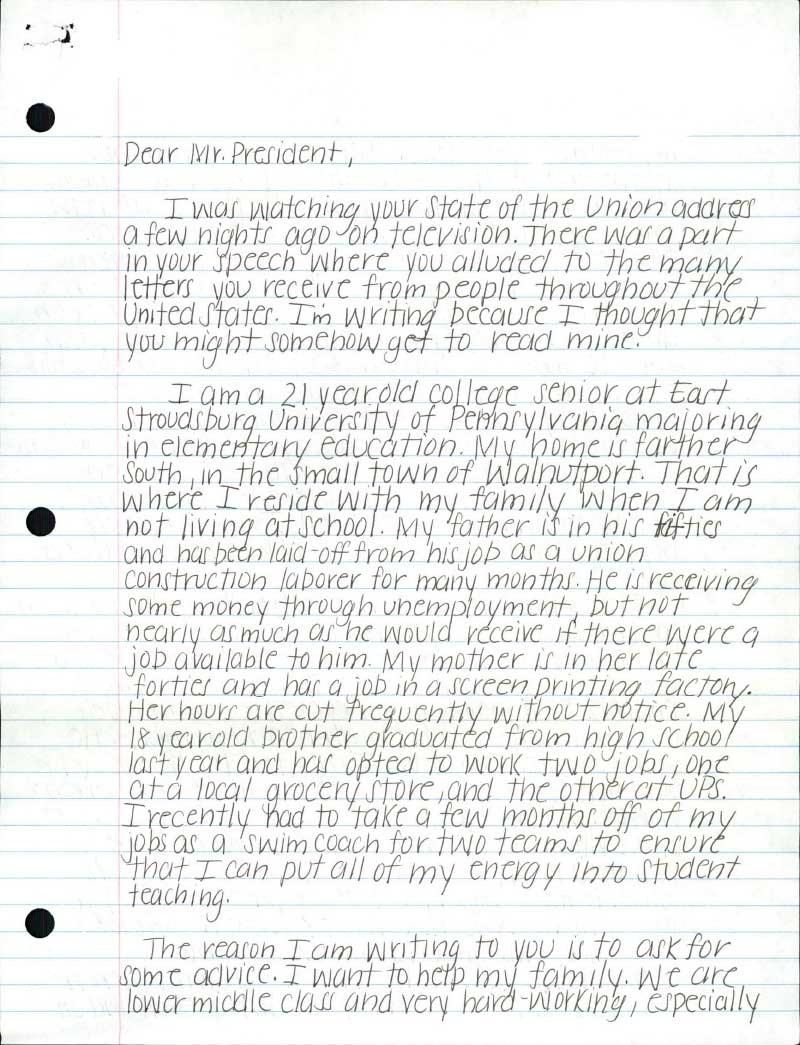 Dear Mr. President,
I was watching your State of the Union address
a few nights ago on television. There was a part
in your speech where you alluded to the many
letters you receive from people throughout the
United States. I'm writing because I thought that
you might somehow get to read mine.
I am a 21 year old college senior at East
Stroudsburg University of Pennsylvania majoring
in elementary education. My home is farther
South, in the small town of Walnutport. That is
where I reside with my family when I am
not living at school. My father is in his fifties
and has been laid-off from his job as a union
construction laborer for many months. He is receiving
some money through unemployment, but not
nearly as much as he would receive if there were a
job available to him. My mother is in her late
forties and has a job in a screen printing factory.
Her hours are cut frequently without notice. My
18 year old brother graduated from high school
last year and has opted to work two jobs, one
at a local grocery store, and the other at UPS.
I recently had to take a few months off of my
jobs as a swim coach for two teams to ensure
that I can put all of my energy into student
teaching.
The reason I am writing to you is to ask for
some advice. I want to help my family. We are
lower middle class and very hard-working, especially